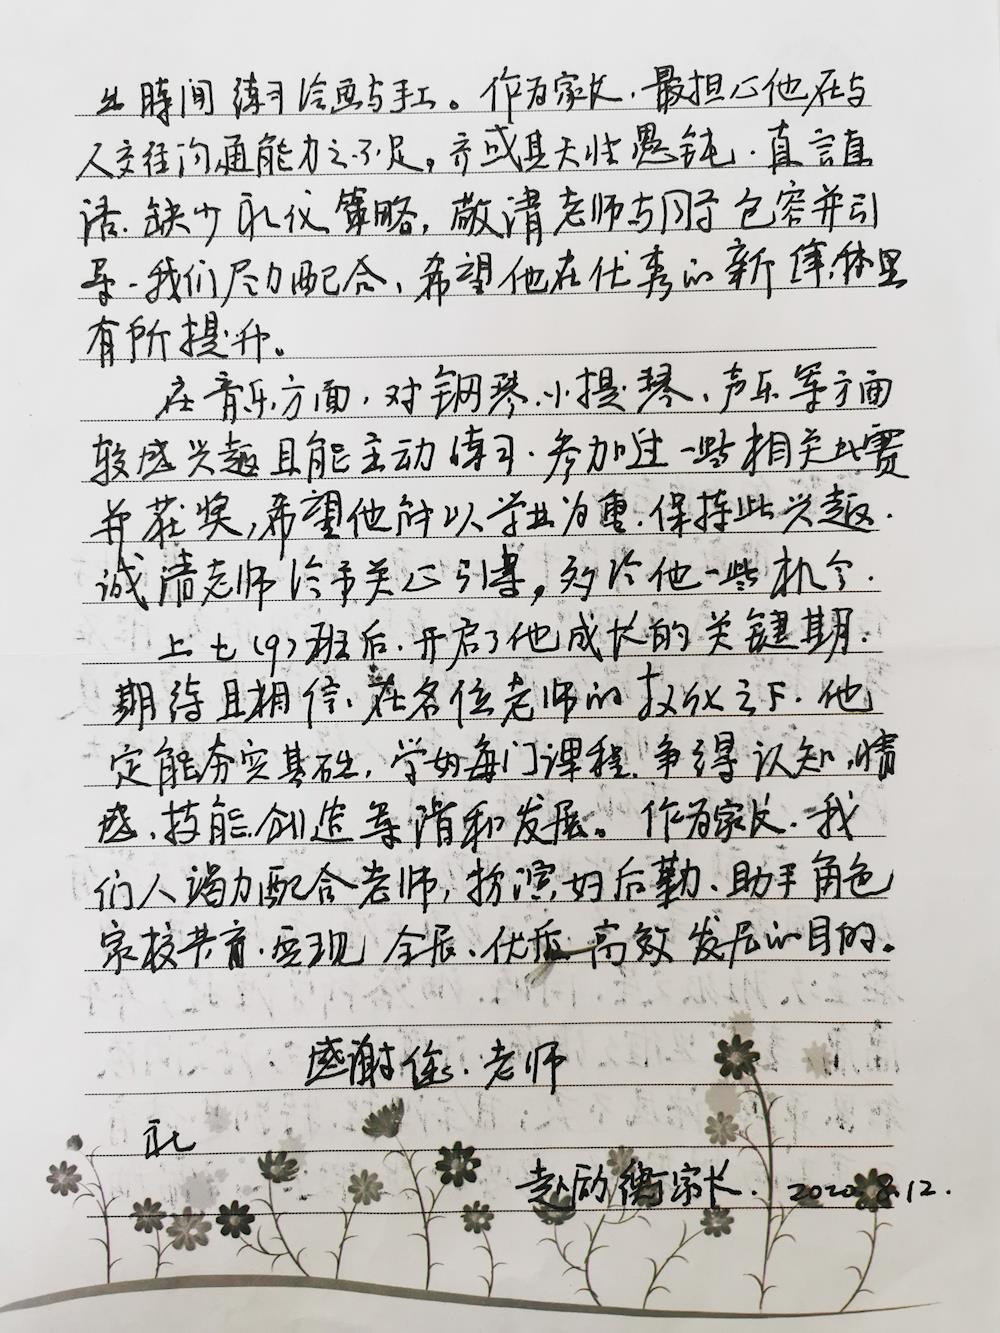 出時间練习绘画与手工。作为家长,最担心他在与
人交往沟通能力之不足,亦或其天性愚钝.直言直
语.缺少礼仪策略,敬请老师与同学包容并引
导.我们尽力配合,希望他在优秀的新集体里
有所提升。
在音乐方面,对钢琴.小提琴,声乐等方面
较感兴趣且能主动練习.参加过一些相关比赛
并获奖,希望他能以学业为重.保持此兴趣.
诚请老师给予关心引導,多给他一些机会.
上七(9)班后.开启了他成长的关键期.
期待且相信.在各位老师的教化之下.他
定能夯实基础,学好每门课程.争得认知,情
感.技能.创造等谐和发展。作为家长.我
们人竭力配合老师,扮演好后勤、助手角色
家校共育.实现全层、优质高效发展的目的。
感谢您.老师
礼
赵励衡家长.2020.8.12.